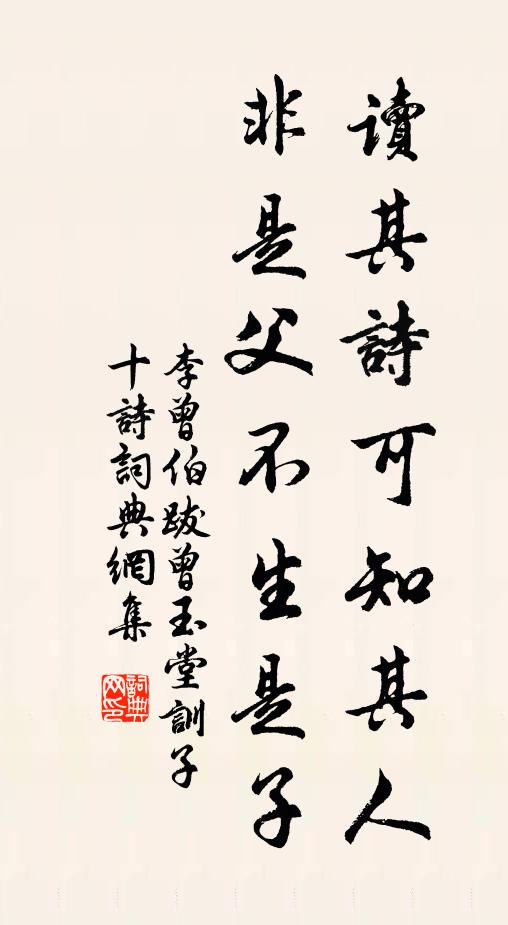 讀其詩可知其人
非是父不生是子
李曾伯跋曾玉堂訓子
十詩詞典網集
詞典
网印